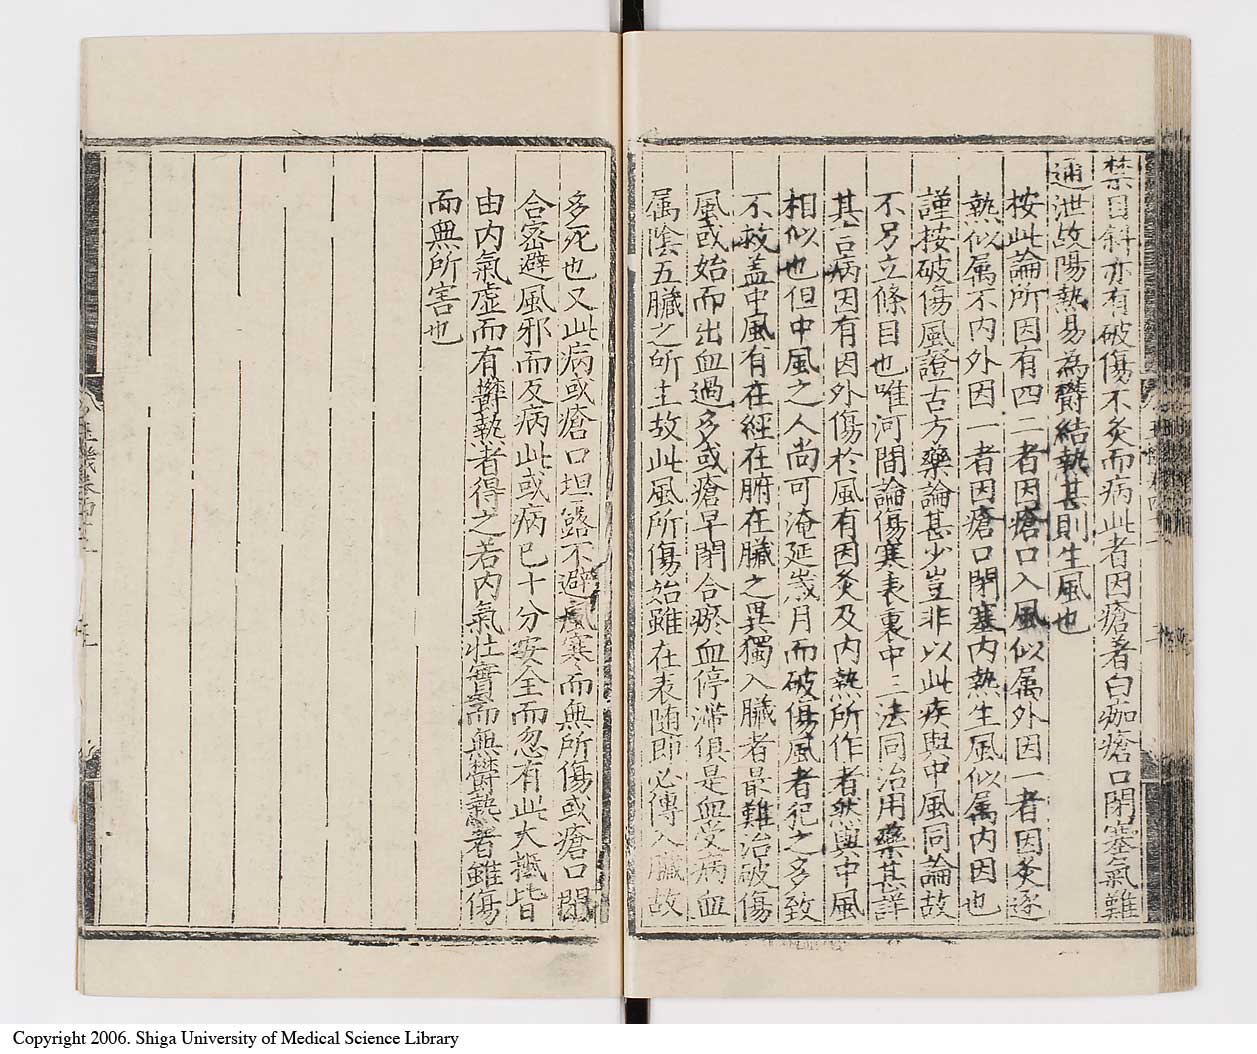 禁目斜亦有破傷不灸而病此者因瘡着白痂瘡口閉塞氣難
通泄故陽熱易為欝結熱甚則生風也
按此論所因有四二者因瘡口入風似属外因一者因灸逐
熱似属不内外因一者因瘡口閉塞内熱生風似属内因也
謹按破傷風證古方藥論甚少豈非以此疾與中風同論故
不另立條目也唯河間論傷寒表裏中三法同治用藥甚詳
其言病因有因外傷於風有因灸及内熱所作者然與中風
相似也但中風之人尚可淹延歳月而破傷風者犯之多致
不救盖中風有在經在腑在臓之異獨入臓者最難治破傷
風或始而出血過多或瘡早閉合瘀血停滯俱是血受病血
属陰五臓之所主故此風所傷始雖在表随即必傳入臓故
多死也又此病或瘡口坦露不避風寒而無所傷或瘡口閉
合密避風邪而反病此或病已十分安全而忽有此大抵皆
由内氣虚而有欝熱者得之若内氣壮實而無欝熱者雖傷
而無所害也
Copyright 2006. Shiga University of Medical Science Library